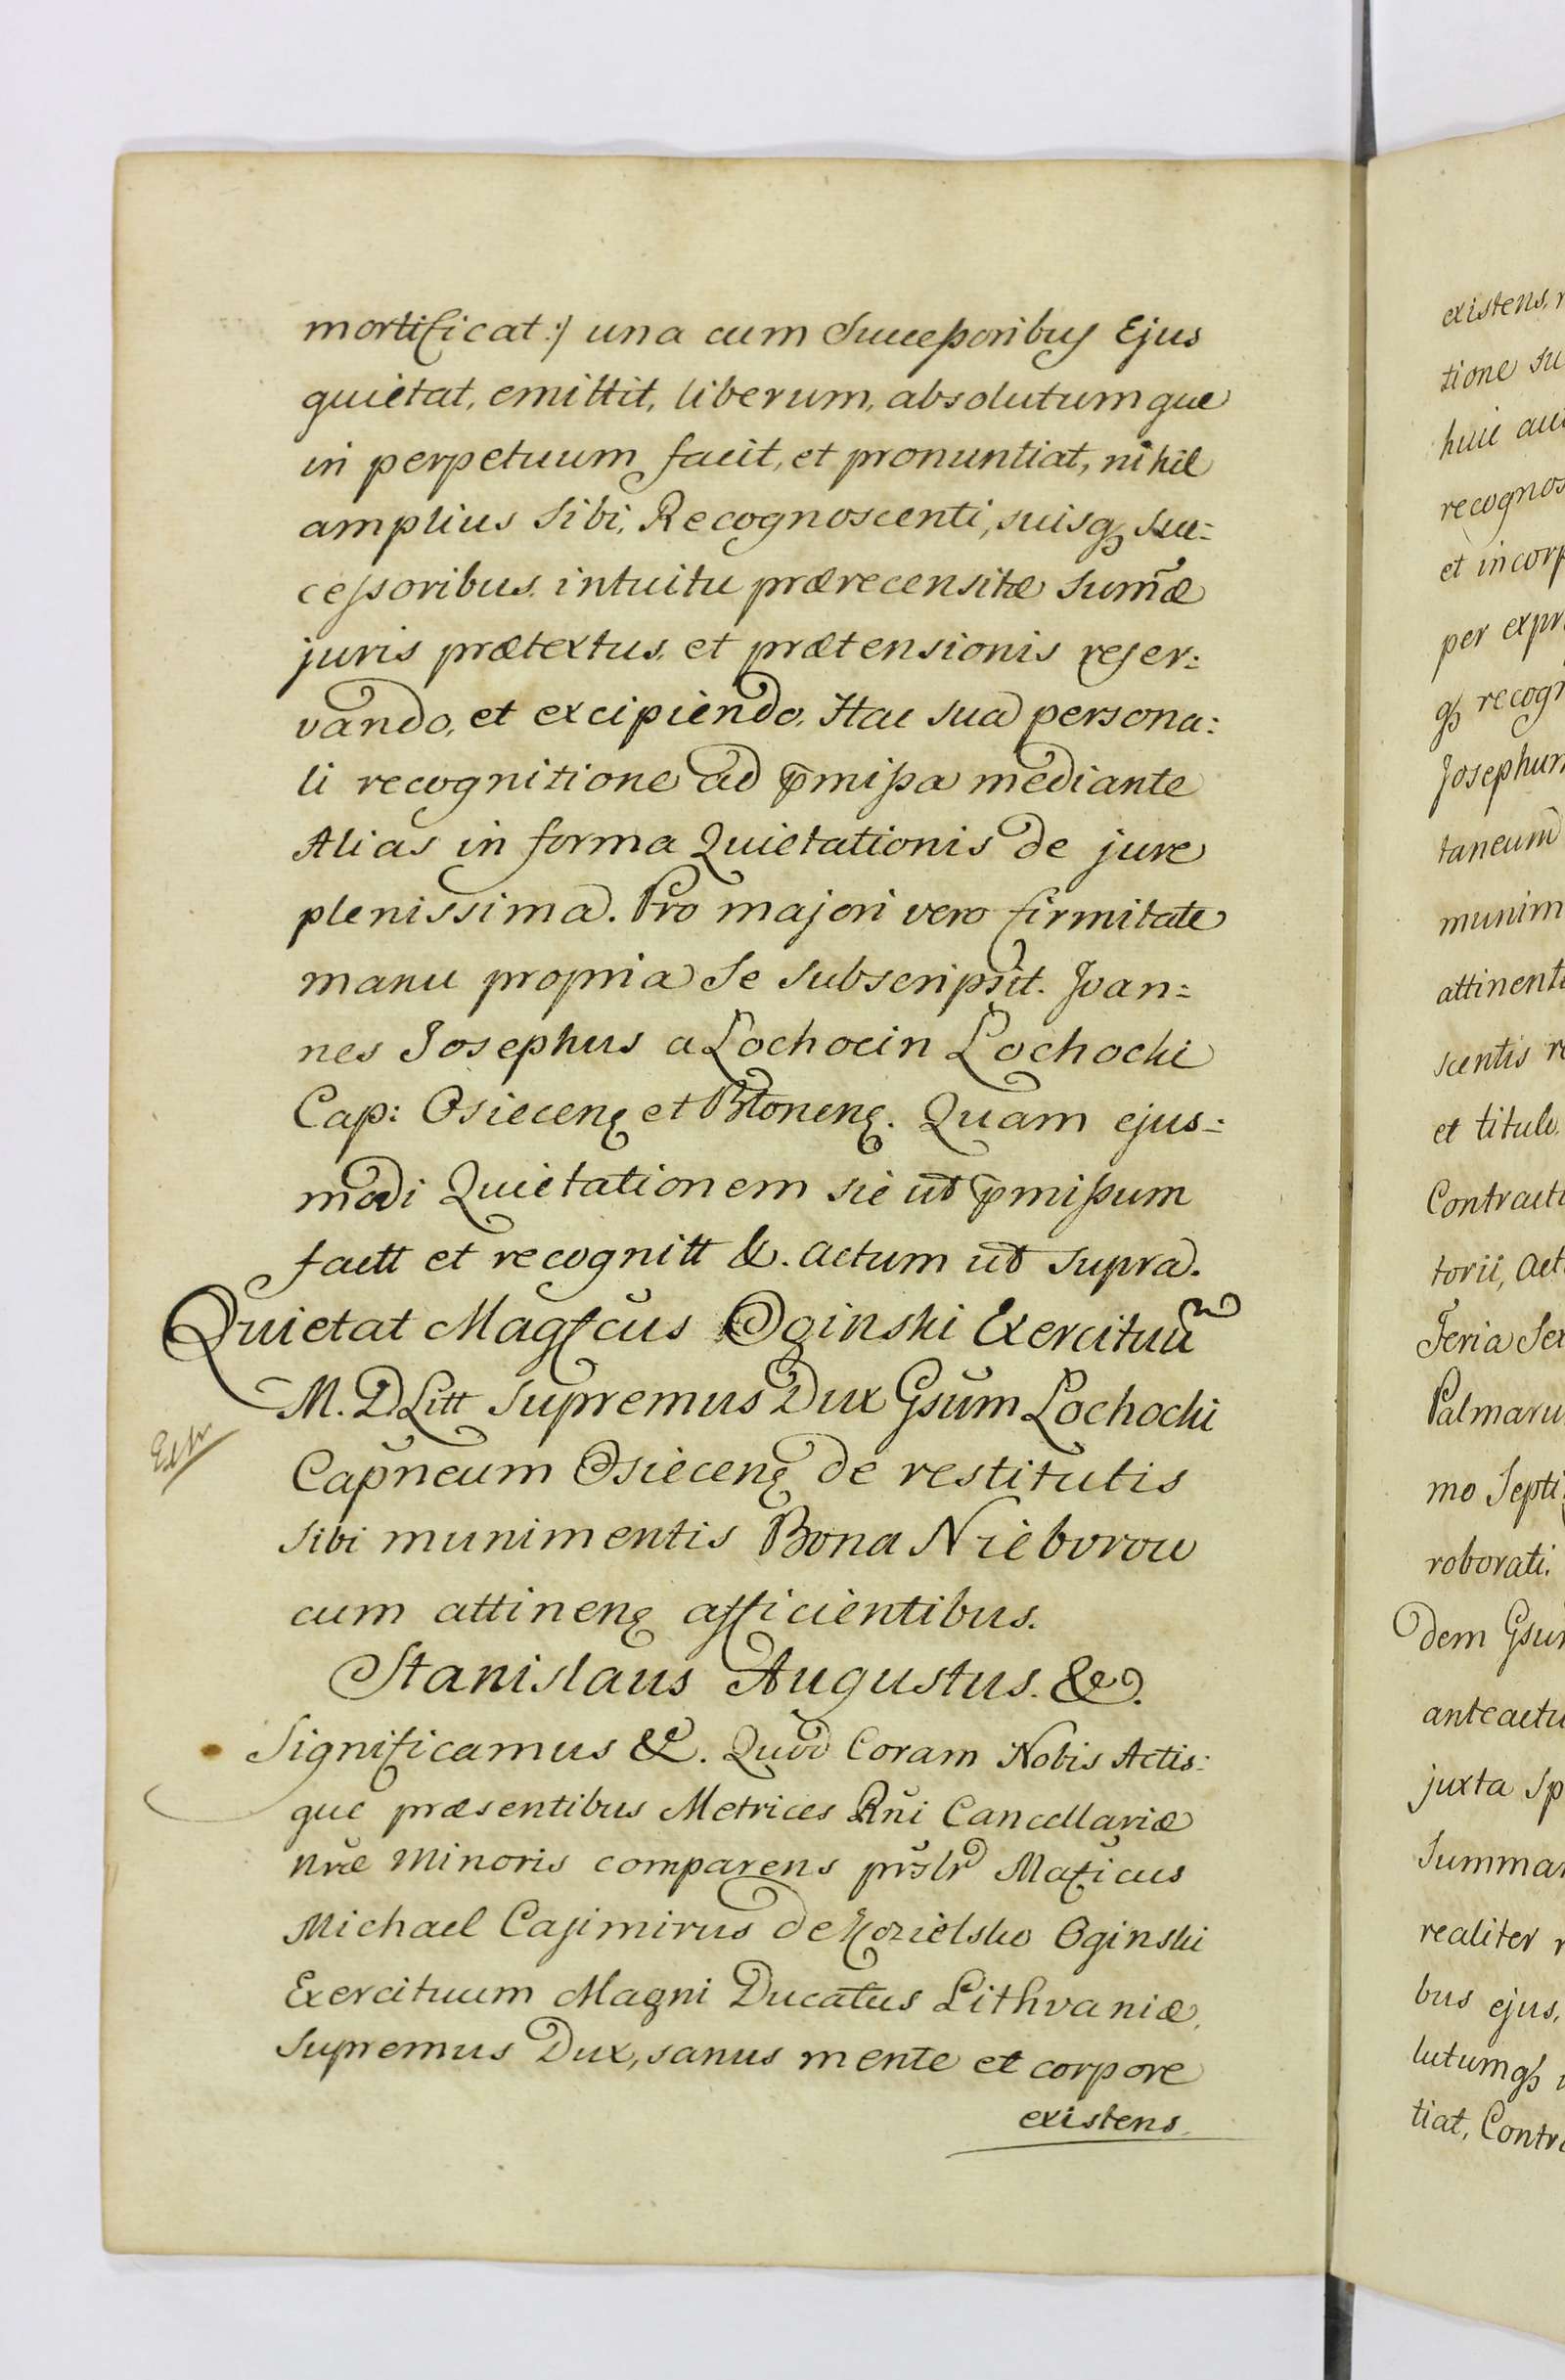 mortificat:/ una cum Successoribus Ejus
quietat, emittit, liberum, absolutumque
in perpetuum facit, et pronuntiat, nihil
amplius Sibi, Recognoscenti, suisq3 Suc=
cessoribus intuitu prærecensitæ Sum̃æ
juris prætextus, et prætensionis reser=
vando, et excipiendo, Hac sua persona=
li recognitione ad p̃missa mediante
Alias in forma Quietationis de jure
plenissima. Pro majori vero firmitate
manu propria Se subscripsit. Joan=
nes Josephus a Lochocin Lochocki
Cap: Osiecenę et Błonenę. Quam ejus=
modi Quietationem sic ut p̃missum
factt et recognitt &. actum ut supra.
Quietat Magfcus Oginski Exercituũ
M. D. Litt Supremus Dux Gsum Lochocki
Extr
Capñeum Osiecenę de restitutis
Sibi munimentis Bona Nieborow
cum attinenę afficientibus.
Stanislaus Augustus. &.
Significamus &. Quod Coram Nobis Actis=
que præsentibus Metrices Rñi Cancellariæ
Nræ Minoris comparens prslr Mafícus
Michael Casimirus de Kozielsko Oginski
Exercituum Magni Ducatus Lithvaniæ,
Supremus Dux, sanus mente et corpore
existens.
existens,
tione su
huic
recognos
et incorp
per expr
q3 recogn
Josephum
taneum
munim
attinenti
scentis re
et titulo
Contractu
torii, act
Feria Sex
Palmaru
mo Septi
roborati.
dem Gsum
anteactu
juxta sp
Summam
realiter
bus ejus,
lutumq3
tiat, Contra